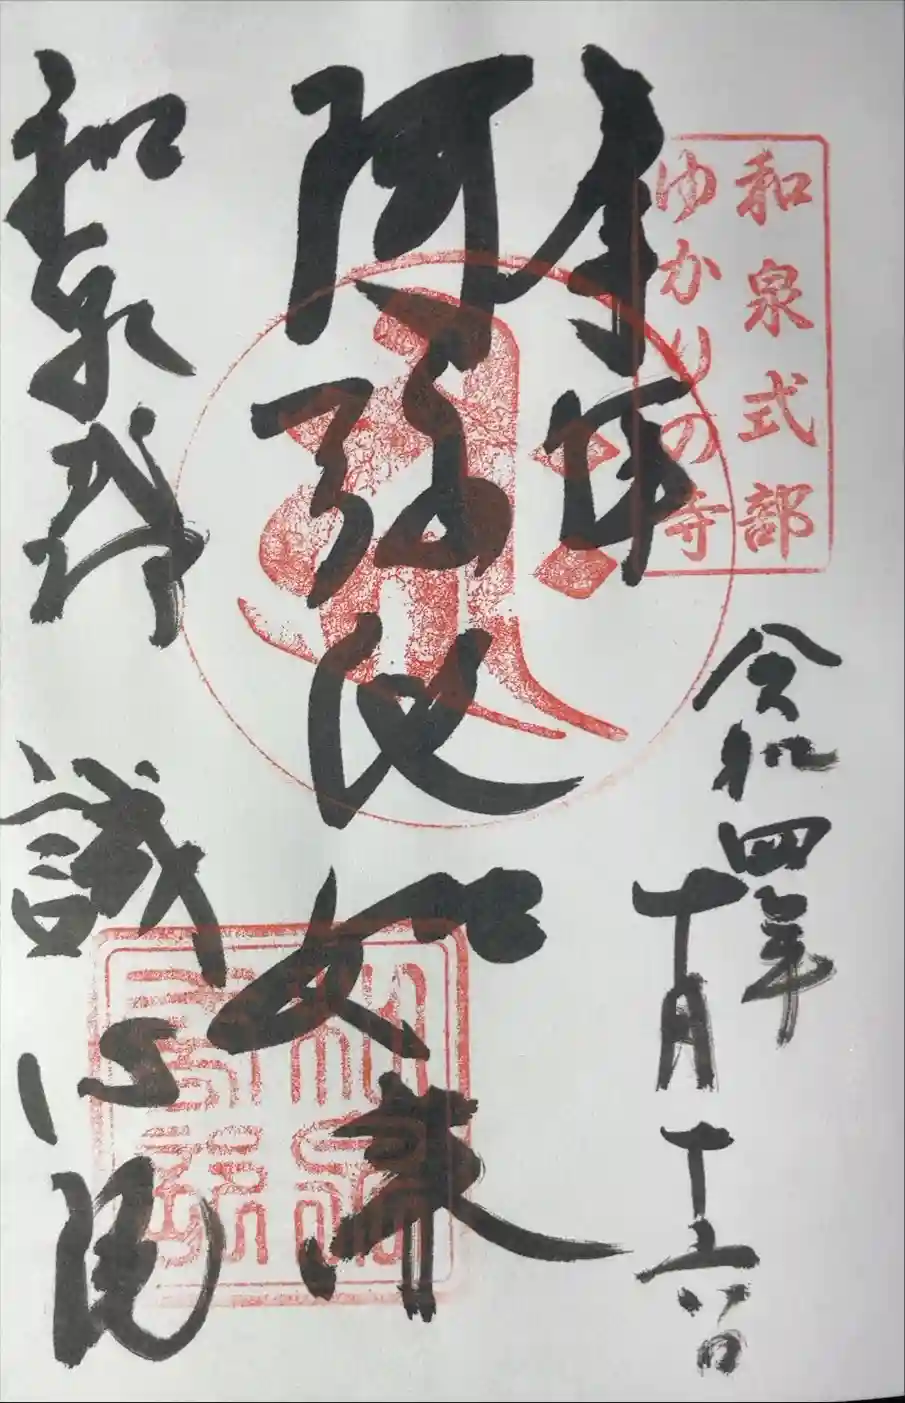 和泉式部
ゆかりの寺
令和四年
十月十六日
奉拝
阿弥陀如来
和泉式部
誠心院